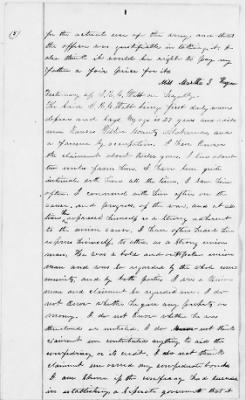 (5)
for the actual use of the army and that
the officer was justifiable in taking it. I
also think it would be right to pay my
father a fair price for it
Miss Martha J.
Testimony of S. R. C. Watt on Loyalty.
The said S. R. C. Watt being first duly sworn
deposes and says My age is 27 years and reside
near County Arkansas and
a farmer by occupation. I have known
the claimant about twelve years. I live about
two miles from him. I have been quite
intimate with him all the time, I saw him
often. I conversed with him often on the
cause, and progress of the war, and at all
times he expressed himself as a strong adherent
to the union cause. I have often heard him
express himself to others as a strong union
man. He was a bold and outspoken union
man and was so regarded by the whole com
munity, and by both parties I was a union
man and claimant so regarded me. I do
not know whether he give any property or
money. I do not know whether he was
threatened or molested. I do not think
claimant ever contributed anything to aid the
confederacy or its credit. I do not think
claimant ever owned any confederate bonds
I am if the confederacy had succeeded
in establishing a separate government that it